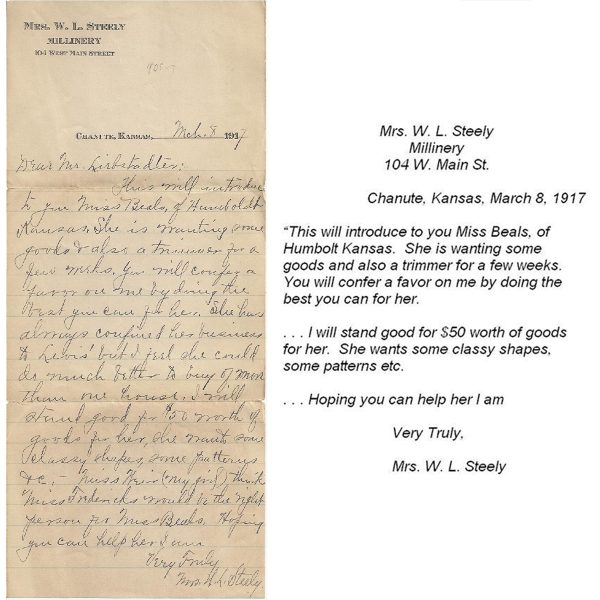 MRS. W. L. STEELY
MILLINERY
104 WEST MAIN STREET
CHANUTE, KANSAS, Mch. 8 1917
Dear Mr.
This will introduce
to you Miss Beals, of Humboldt
Kansas. She is wanting some
goods & also a trimmer for a
few weeks. You will confer a
favor on me by doing the
best you can for her. She has
always confined her business
to Levis' but I feel she could
do much better to buy of more
than one house. I will
stand good for $50 worth of
goods for her, she wants some
classy shapes, some patterns
&c, - Miss (my girl) thinks
Miss Fredericks would be the right
person for Miss Beals. Hoping
you can help her I am
Very Truly
Mrs. W. L. Steely
Mrs. W. L. Steely
Millinery
104 W. Main St.
Chanute, Kansas, March 8, 1917
“This will introduce to you Miss Beals, of
Humbolt Kansas. She is wanting some
goods and also a trimmer for a few weeks.
You will confer a favor on me by doing the
best you can for her.
. . . I will stand good for $50 worth of goods
for her. She wants some classy shapes,
some patterns etc.
. . . Hoping you can help her I am
Very Truly,
Mrs. W. L. Steely